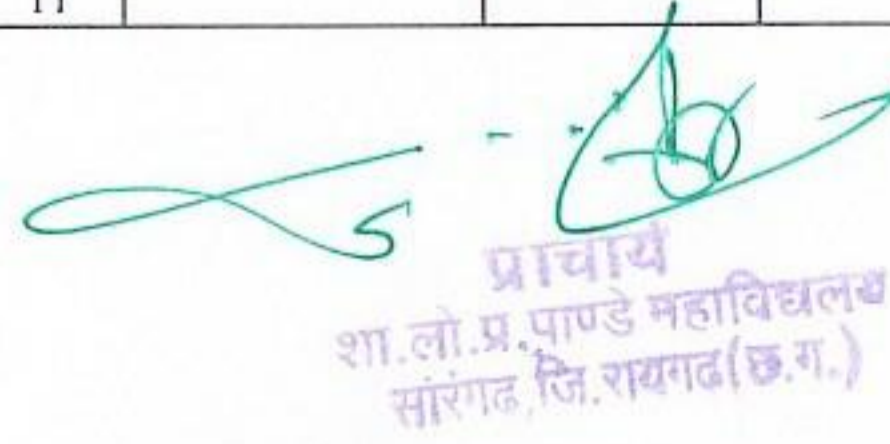 11
प्राचार्य
शा.लो.प्र.पाण्डे महाविद्यलय
सांरंगढ, जि.रायगढ(छ.ग.)